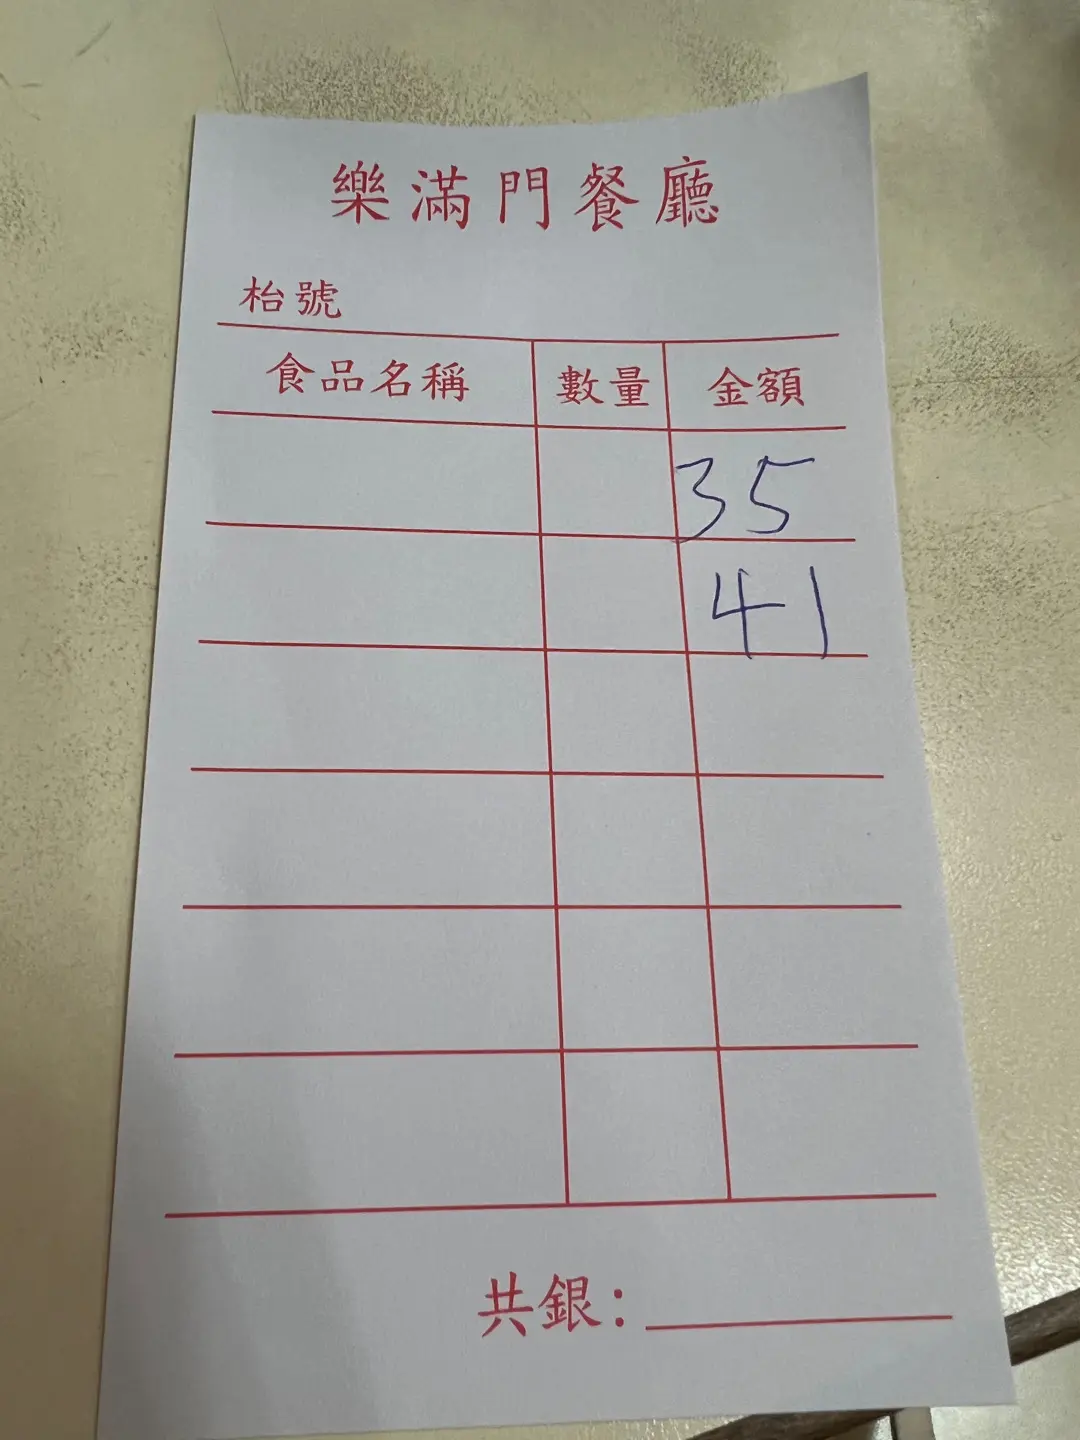 樂滿門餐廳
枱號
食品名稱 數量 金額
35
41
共銀：